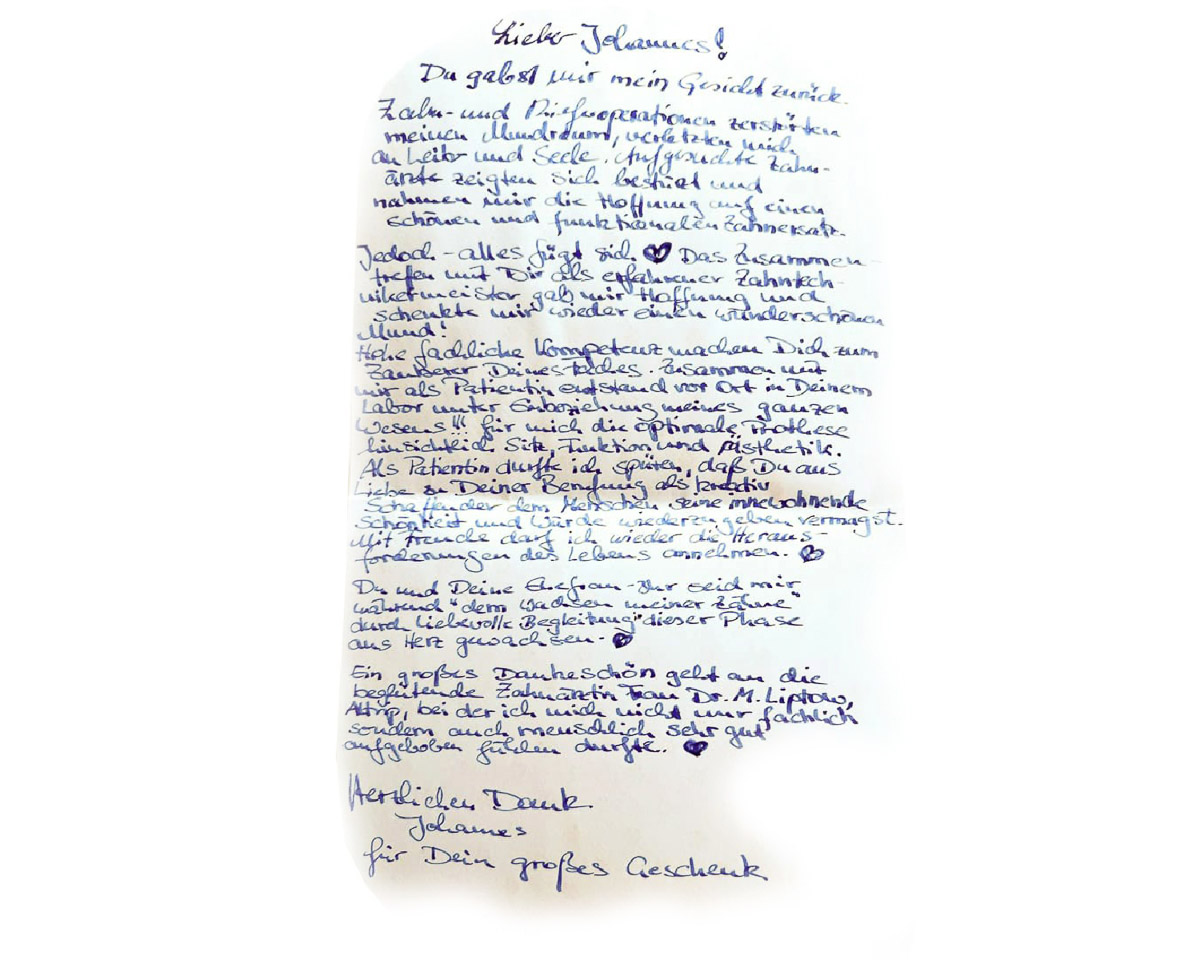 Lieber Johannes!
Du gabst mir mein Gesicht zurück.
Zahn- und Kieferoperationen zerstörten
meinen Mundraum, verletzten mich
an Leib und Seele. Aufgesuchte Zahn-
ärzte zeigten sich bestürzt und
nahmen mir die Hoffnung auf einen
schönen und funktionalen Zahnersatz.
Jedoch - alles fügt sich ♥ Das Zusammen-
treffen mit Dir als erfahrener Zahntech-
nikermeister gab mir Hoffnung und
schenkte mir wieder einen wunderschönen
Mund!
Hohe fachliche Kompetenz machen Dich zum
Zauberer Deines Faches. Zusammen mit
mir als Patientin entstand vor Ort in Deinem
Labor unter Einbeziehung meines ganzen
Wesens!!! für mich die optimale Prothese
hinsichtlich Sitz, Funktion und Ästhetik.
Als Patientin durfte ich spüren, daß Du aus
Liebe zu Deiner Berufung als kreativ
Schaffender dem Menschen seine innewohnende
Schönheit und Würde wiederzugeben vermagst.
Mit Freude darf ich wieder die Heraus-
forderungen des Lebens annehmen. ♥
Du und Deine Ehefrau - Ihr seid mir
während "dem Wachsen meiner Zähne"
durch liebevolle Begleitung dieser Phase
ans Herz gewachsen. ♥
Ein großes Dankeschön geht an die
begleitende Zahnärztin Frau Dr. M. Liptow,
Altrip, bei der ich mich nicht nur fachlich
sondern auch menschlich sehr gut
aufgehoben fühlen durfte. ♥
Herzlichen Dank
Johannes
für Dein großes Geschenk